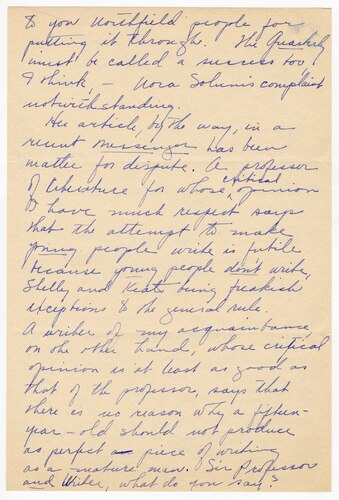 to you Northfield people for
putting it through. The Quarterly
must be called a success too
I think, – Nora Solum's complaint
notwithstanding.
Her article, by the way, in a
recent Messenger has been
matter for dispute. A professor
of literature for whose critical opinion
I have much respect says
that the attempt to make
young people write is futile
because young people don't write,
Shelly and Keats being freakish
exceptions to the general rule.
A writer of my acquaintance,
on the other hand, whose critical
opinion is at least as good as
that of the professor, says that
there is no reason why a fifteen-
year-old should not produce
as perfect a piece of writing
as a mature man. Sir Professor
and Writer, what do you say?